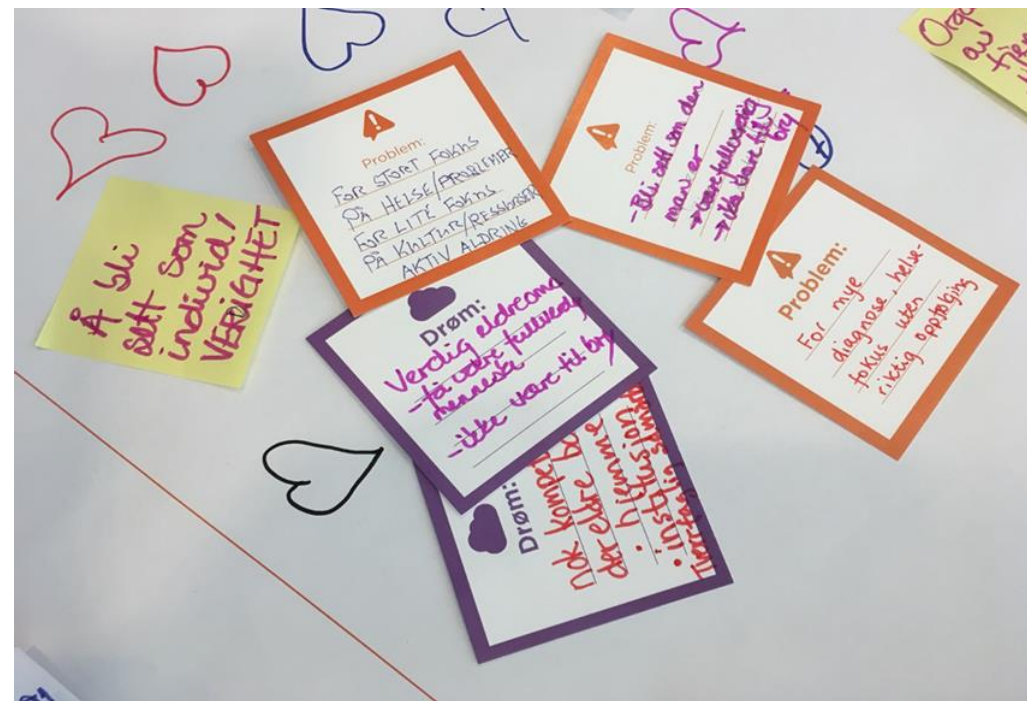 Å bli
sett som
individ/
VERDIGHET
Problem:
FOR STORT FOKUS
PÅ HELSE/PROBLEMER
FOR LITE FOKUS
PÅ KULTUR/RESSURSER
AKTIV ALDRING
Problem:
- Bli sett som den
man er
→ være fullverdig
→ ikke være til bry
Problem:
For mye
diagnose, helse-
fokus uten
riktig oppfølging
Drøm:
Verdig eldreoms
- få være fullverdig
menneske
- ikke være til bry
Drøm:
nok kompe
der eldre bo
• hjemme
• institusjon
av